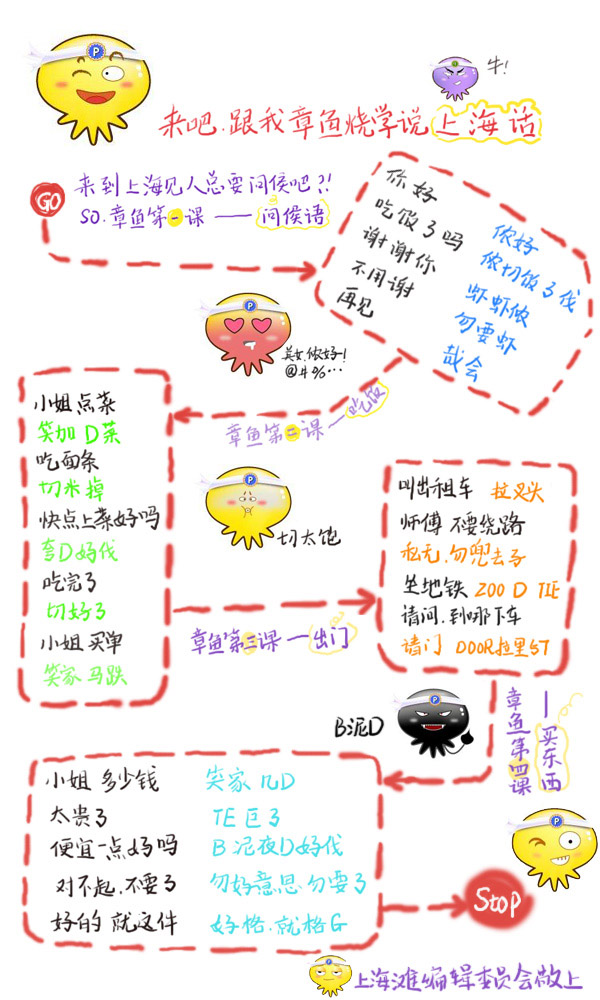 牛!
来吧.跟我章鱼烧学说上海话
GO
来到上海见人总要问侯吧?!
SO.章鱼第一课——问侯语
你好
吃饭了吗
谢谢你
不用谢
再见
侬好
侬切饭了伐
虾虾侬
勿要虾
哉会
美女侬好!
@#%…
章鱼第二课—吃饭
小姐点菜
笑加D菜
吃面条
切米掉
快点上菜好吗
弯D好伐
吃完了
切好了
小姐买单
笑家马跌
切太饱
章鱼第三课—出门
叫出租车 拉叉头
师傅不要绕路
私无.勿兜去子
坐地铁 ZOO D TIE
请问.到哪下车
请门 DOOR拉里ST
章鱼第四课
—买东西
B泥D
小姐 多少钱 笑家几D
太贵了 TE巨了
便宜一点好吗 B泥夜D好伐
对不起.不要了 勿好意思.勿要了
好的 就这件 好格.就格G
Stop
上海滩编辑委员会敬上